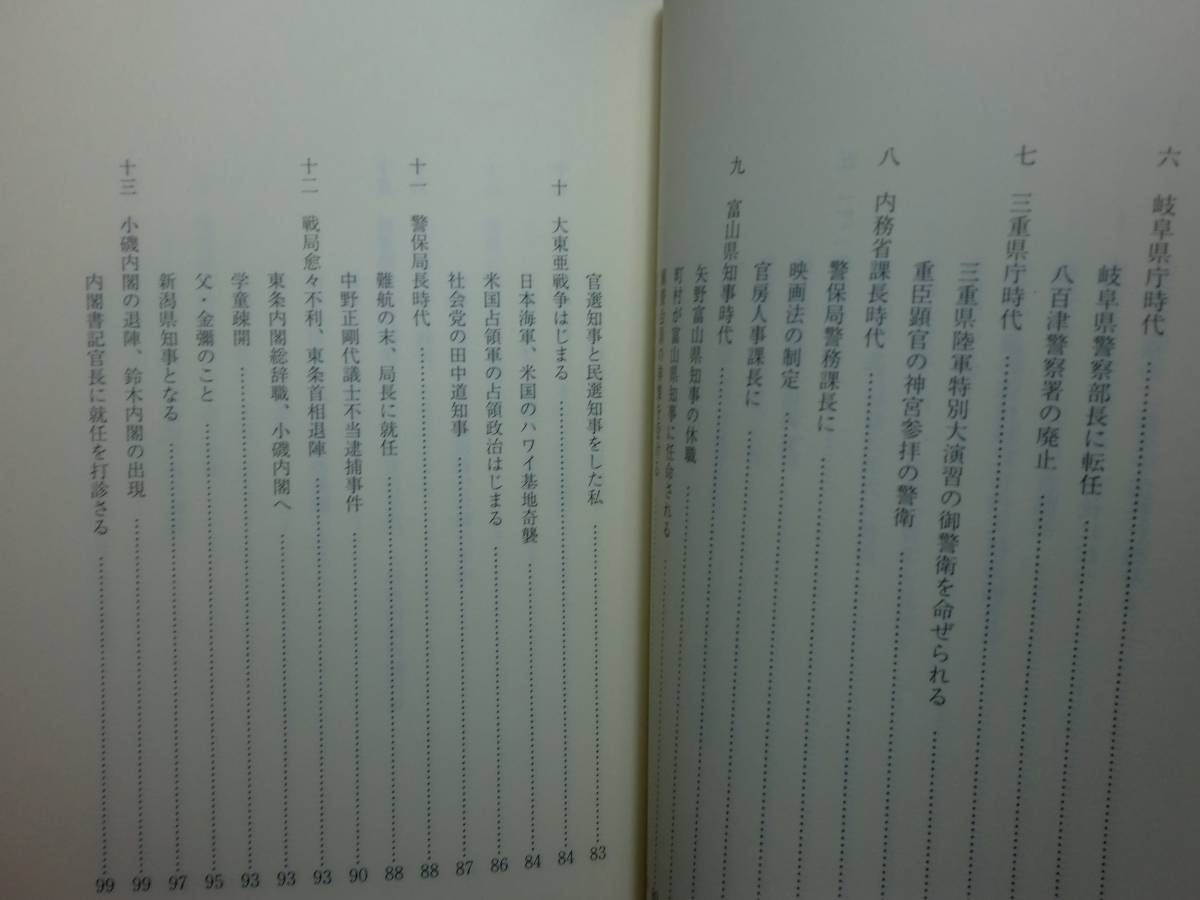 六 岐阜県庁時代
岐阜県警察部長に転任
八百津警察署の廃止
七 三重県庁時代
三重県陸軍特別大演習の御警衛を命ぜられる
重臣顕官の神宮参拝の警衛
八 内務省課長時代
警保局警務課長に
映画法の制定
官房人事課長に
九 富山県知事時代
矢野富山県知事の休職
町村が富山県知事に任命される
官選知事と民選知事をした私 83
十 大東亜戦争はじまる 84
日本海軍、米国のハワイ基地奇襲 84
米国占領軍の占領政治はじまる 86
社会党の田中道知事 87
十一 警保局長時代 88
難航の末、局長に就任 88
中野正剛代議士不当逮捕事件 90
十二 戦局愈々不利、東条首相退陣 93
東条内閣総辞職、小磯内閣へ 93
学童疎開 93
父・金彌のこと 95
新潟県知事となる 97
十三 小磯内閣の退陣、鈴木内閣の出現 99
内閣書記官長に就任を打診さる 99